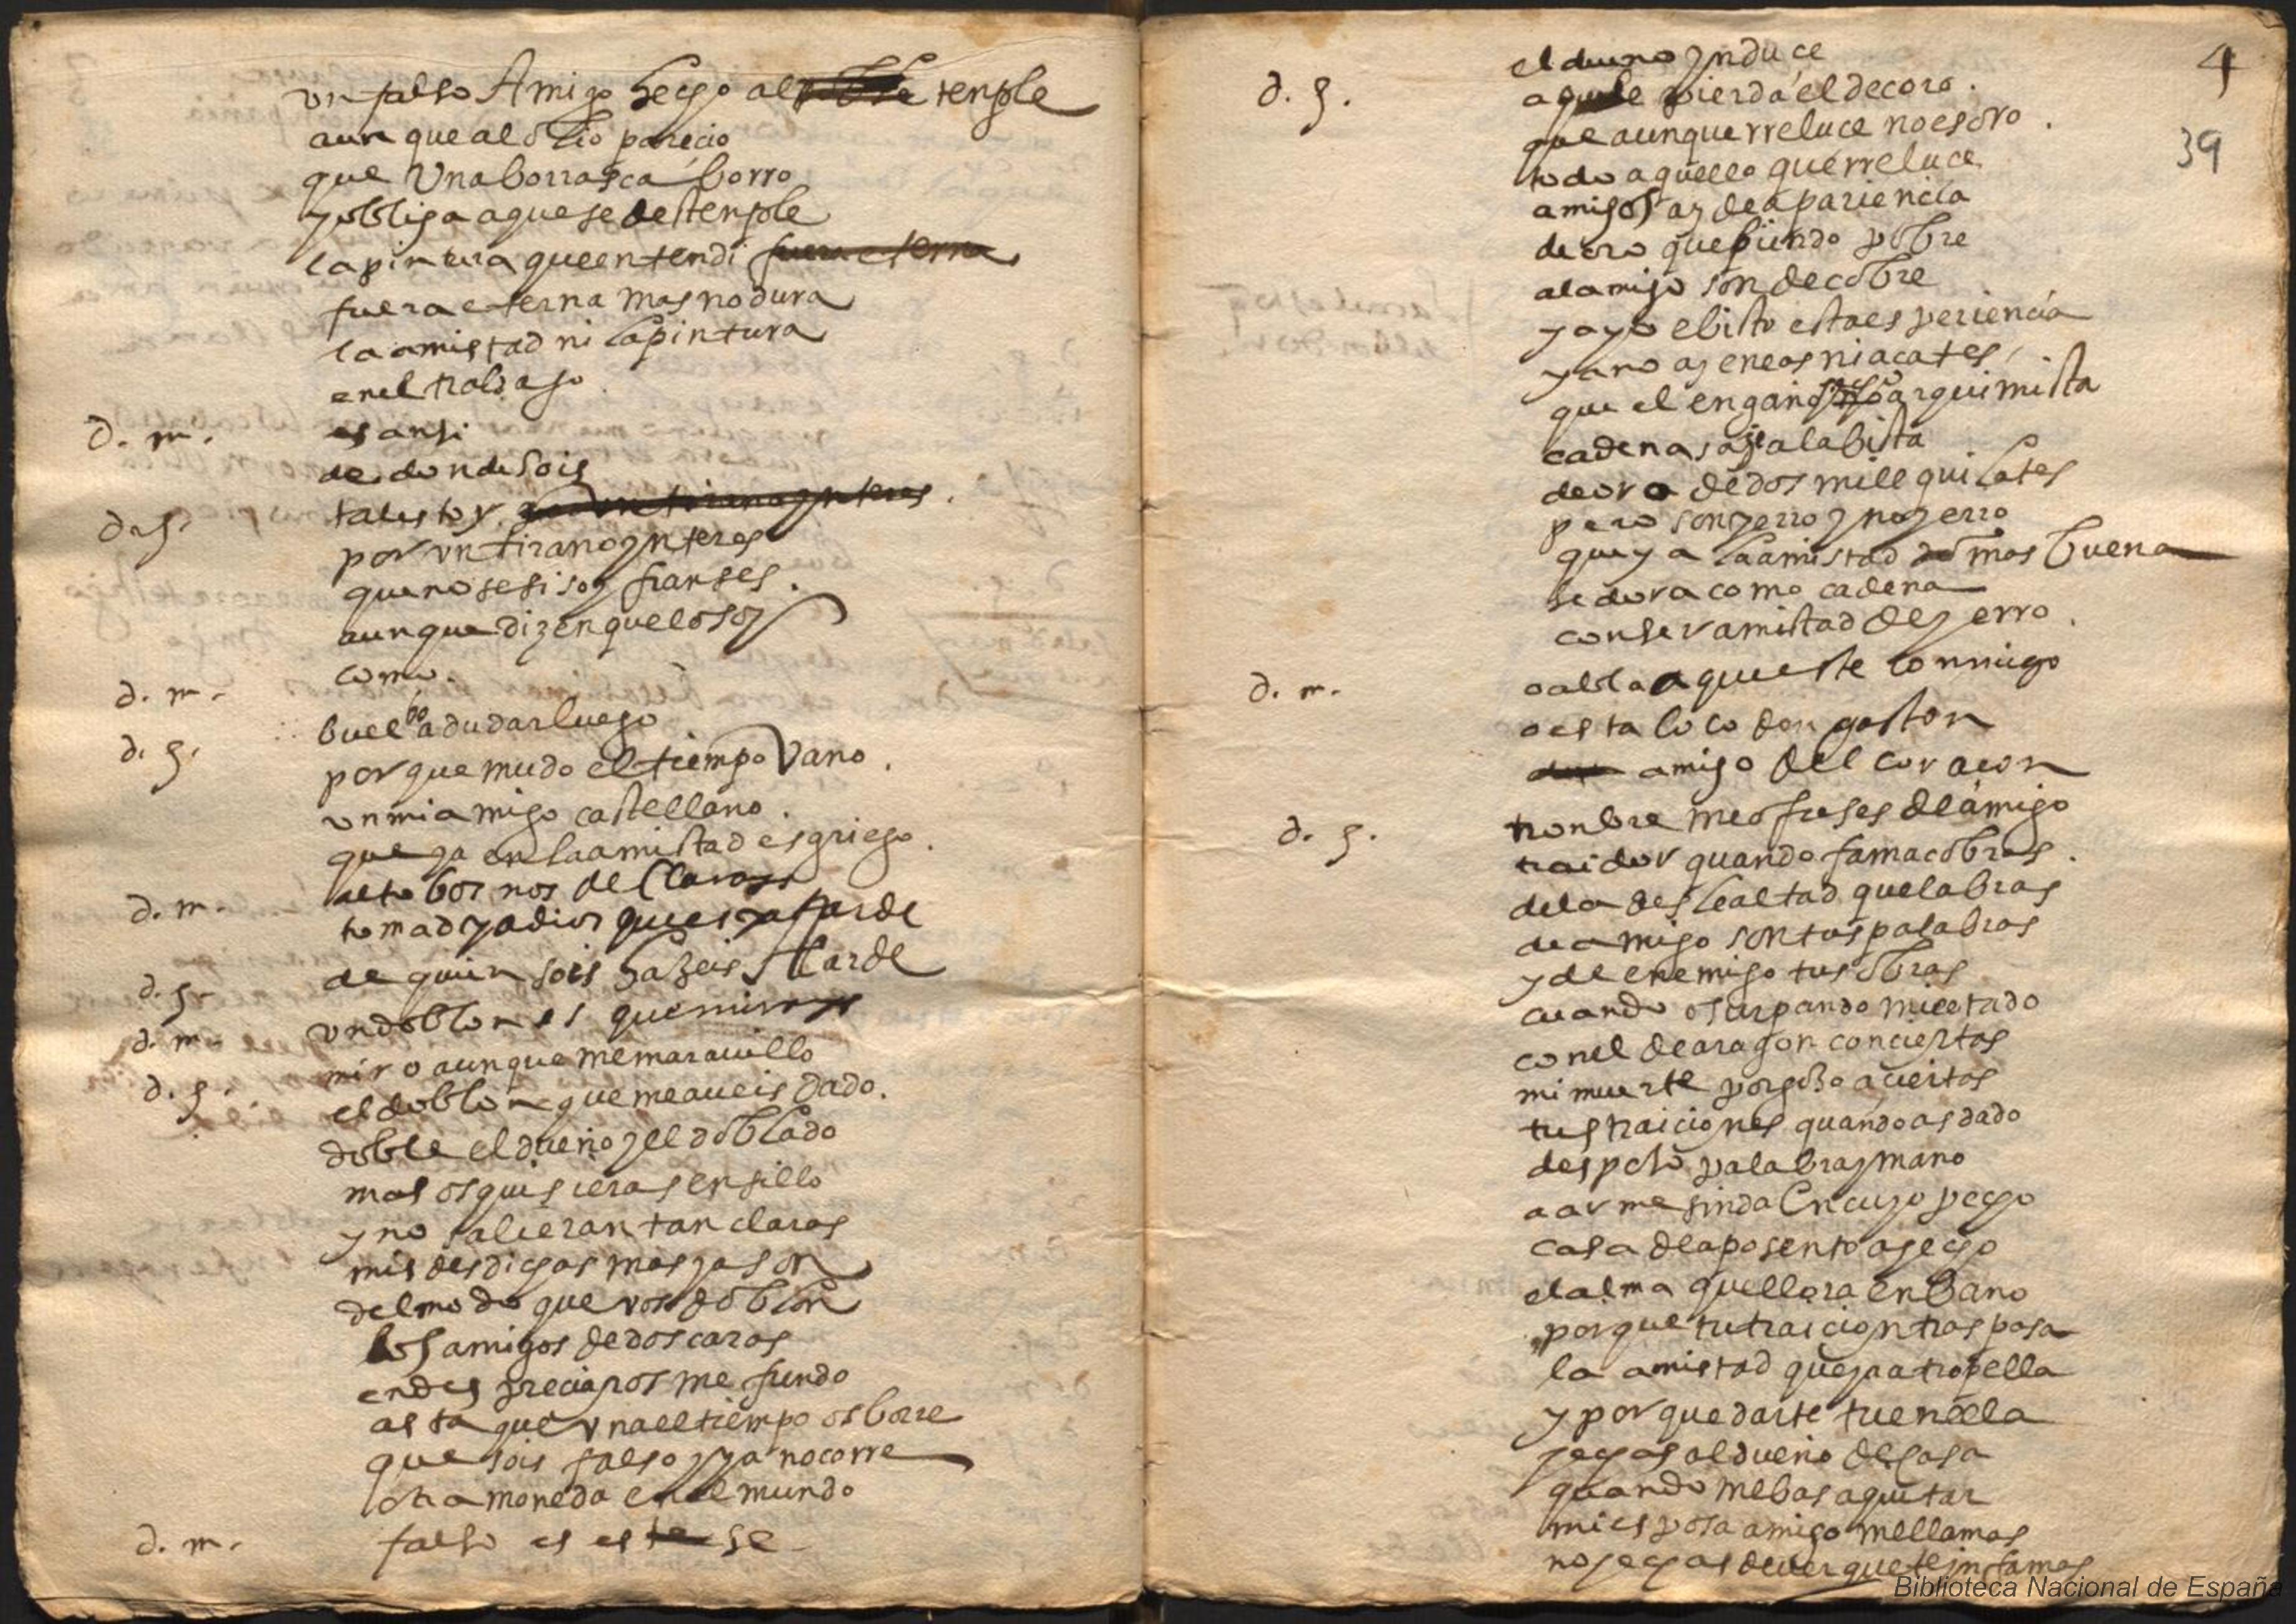 un falso Amigo hecho al temple
aunque al olio parecio
que Una borrasca borro
y obliga a que se destemple
la pintura que entendi fuera eterna
fuera eterna mas no dura
la amistad ni la pintura
en el trabajo
d. m. es ansi
de donde sois
d. g. tal estoy por un tirano ynteres
por un tirano ynteres
que no se si soy franses
aunque dizen que lo soy
d. m. como
d. g. buelbo a dudar luego
porque mudo el tiempo Vano
un mi amigo castellano
que ya en la amistad es griego
alto bos nos
d. m. tomad y adios que es ya tarde
de quien sois hazeis Alarde
d. g. un doblon es que mirays
d. m. miro aunque me marauillo
d. g. el doblon que me aueis dado
doble el dueño y el doblado
mas os quisiera sensillo
y no salieran tan claras
mis desdichas mas ya son
del modo que vos doblon
los amigos de dos caras
en despreciaros me fundo
asta que una el tiempo os borre
que sois falso y ya no corre
otra moneda en el mundo
d. m. falso es es se
4
39
el dueno ynduce
d. g. a que le pierda el decoro
que aunque rreluce no es oro
todo aquello que rreluce
amigos ay de apariencia
de oro que biendo pobre
al amigo son de cobre
ya yo e bisto esta esperiencia
ya no ay eneas ni acates
que el engañoso arquimista
cadenas aze a la bista
de oro de dos mill quilates
pero son yerro y no yerro
que ya la amistad mas buena
se dora como cadena
con ser amistad de yerro
d. m. o abla aqueste conmigo
o esta loco don gaston
amigo del coraçon
d. g. nonbre me ofreses de amigo
traidor quando fama cobras
de la deslealtad que labras
de amigo son tus palabras
y de enemigo tus obras
cuando osurpando mi estado
con el de aragon conciertas
mi muerte por aciertas
tus traiciones quando as dado
desposo palabra y mano
a armesinda En cuyo pecho
casa de aposento a hecho
el alma que llora en bano
porque tu traicion traspasa
la amistad que ya atropella
y por quedarte tu en ella
hechas al dueño de casa
quando me bas a quitar
mi esposa amigo me llamas
no hechas de ver que te ynfamas
Biblioteca Nacional de España